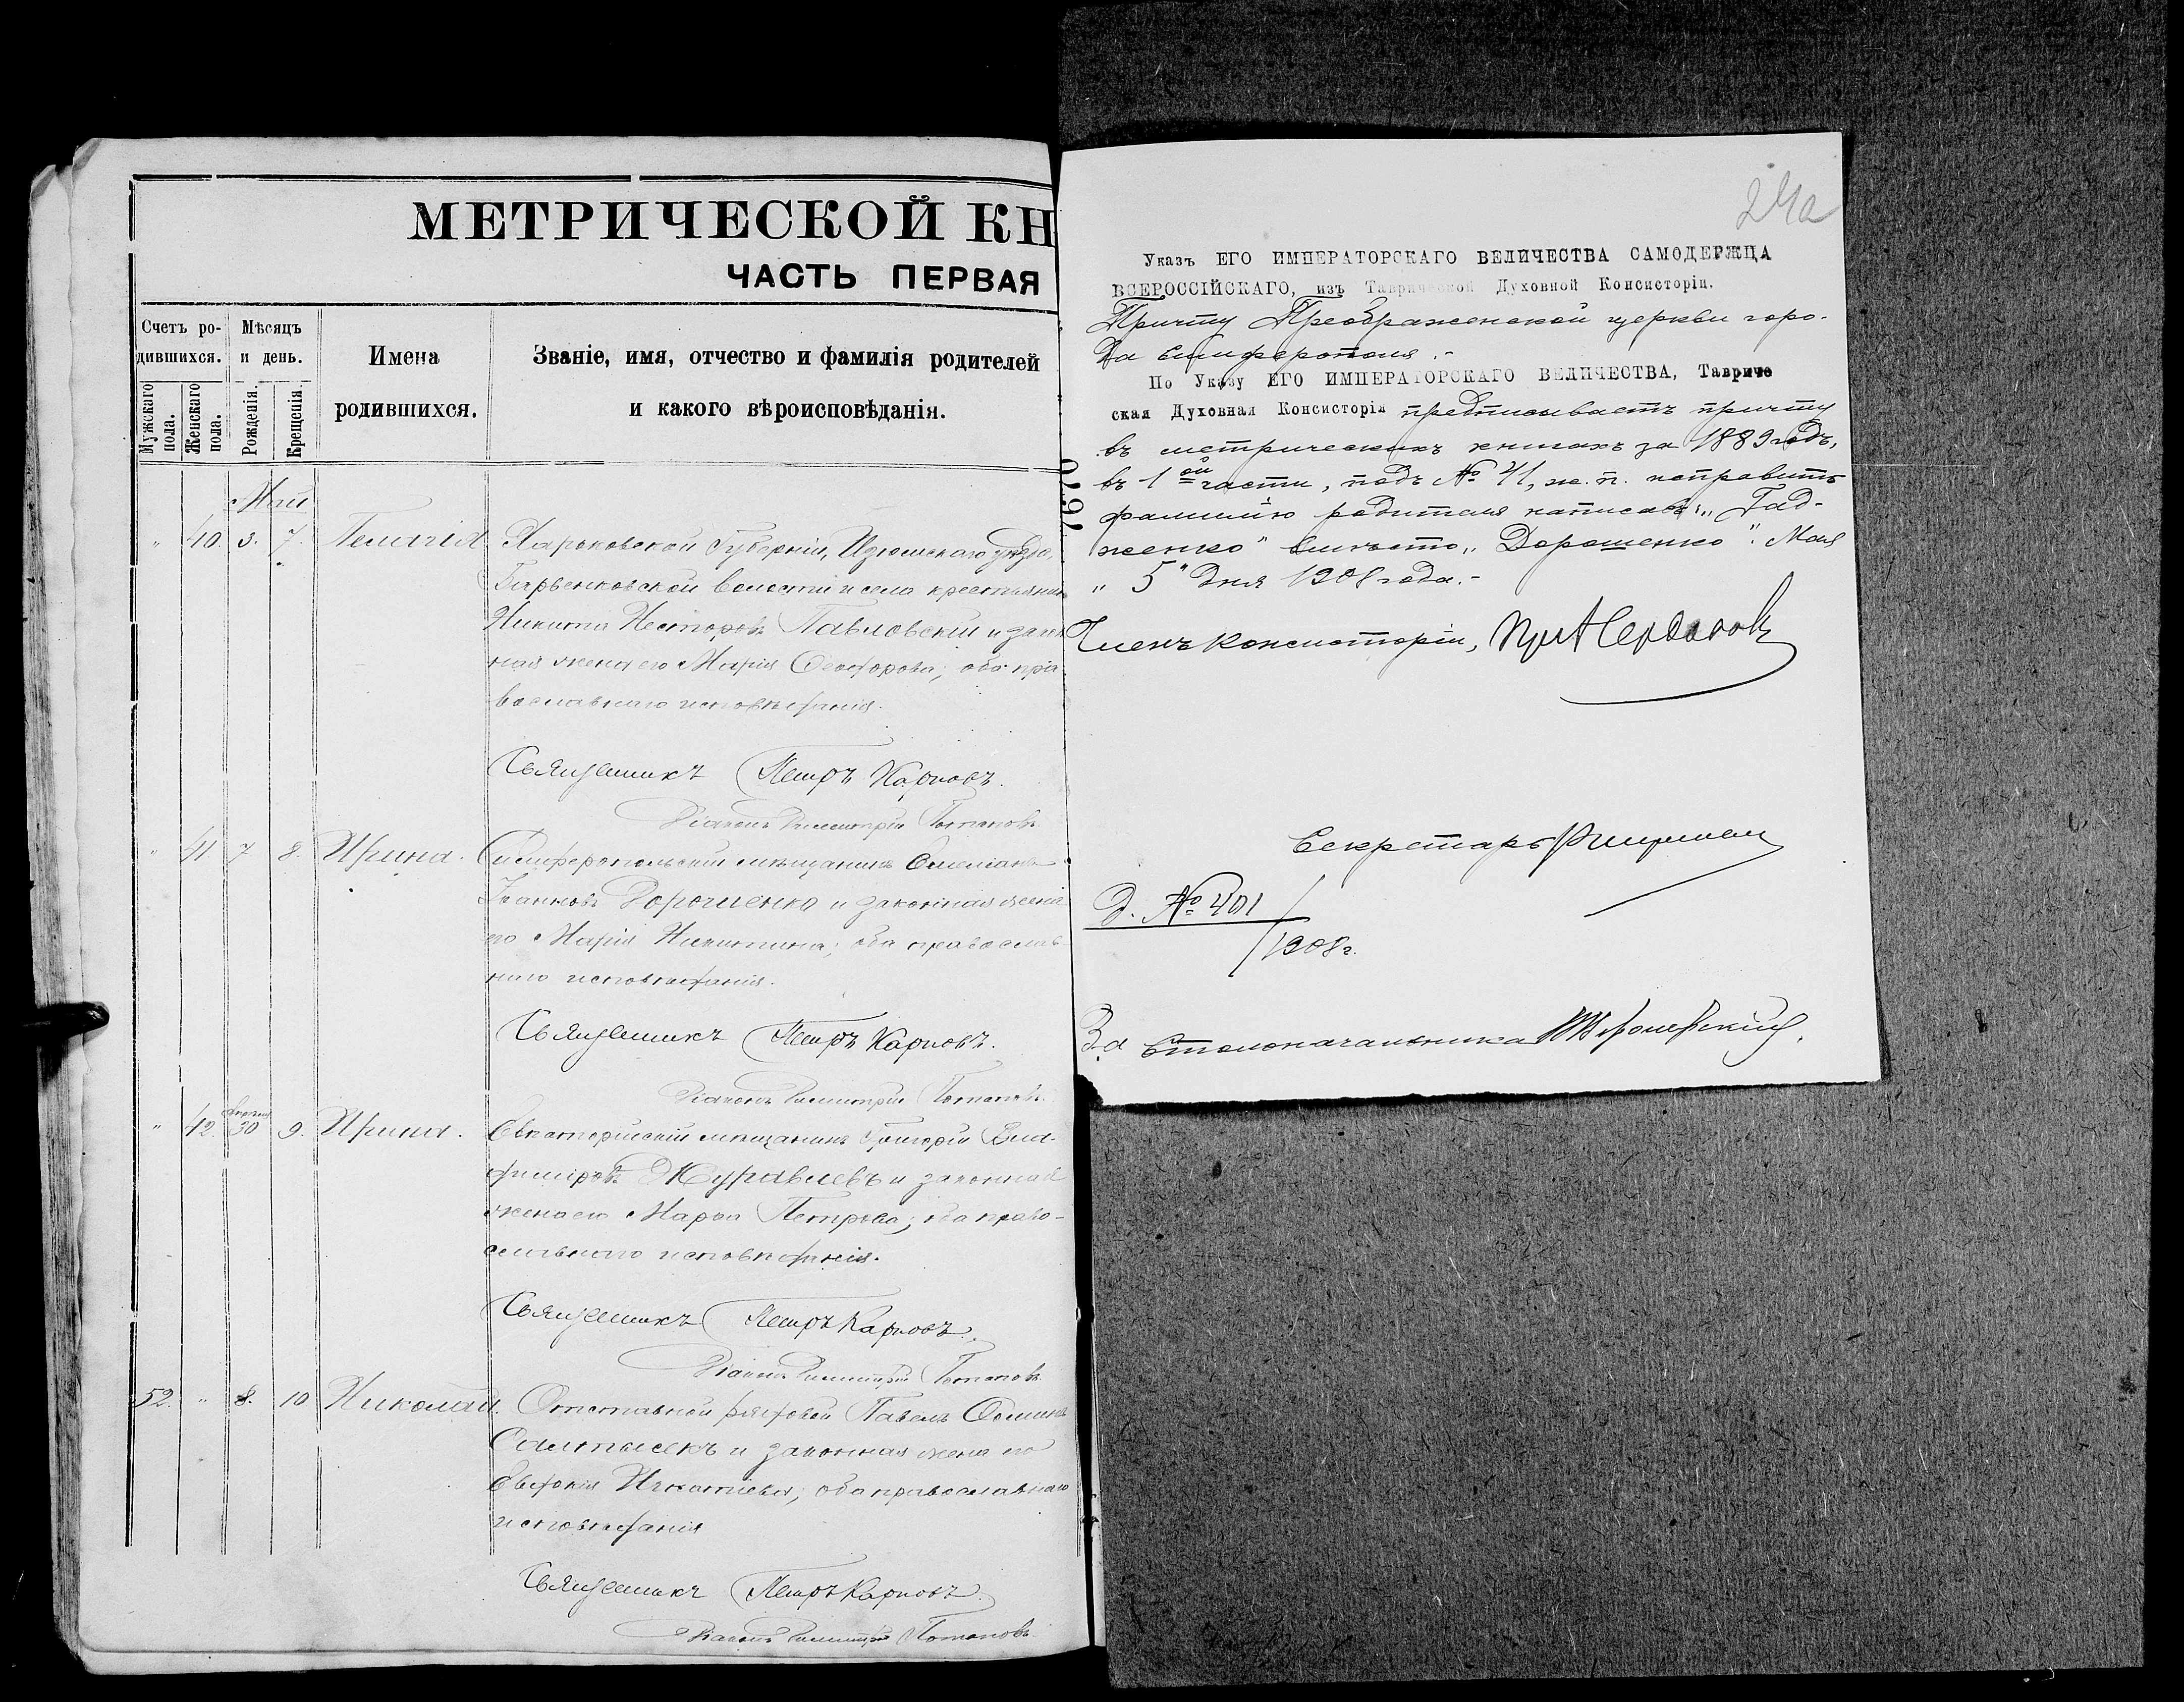 МЕТРИЧЕСКОЙ КН
ЧАСТЬ ПЕРВАЯ
Счетъ ро-
дившихся.
Мужскаго
пола.
Женскаго
пола.
Мѣсяцъ
и день.
Рожденія.
Крещенія.
Имена
родившихся.
Званіе, имя, отчество и фамилія родителей
и какого вѣроисповѣданія.
Май
" 40. 3. 7. Пелагія Харьковской Губерніи, Изюмскаго уѣзда,
Барвенковской волости и села крестьянинъ
Никита Несторовъ Павловскій и закон
ная жена его Марія Ѳеодорова; оба пра-
вославнаго исповѣданія.
Священникъ Петръ Карповъ.
Діаконъ Димитрій Потаповъ
" 41 7 8. Ирина. Симферопольскій мѣщанинъ Емеліанъ
Іоанновъ Дорошенко и законная жена
его Марія Никитина; оба православ
наго исповѣданія.
Священникъ Петръ Карповъ.
Діаконъ Димитрій Потаповъ.
" 42. 30 9. Ирина. Евпаторійскій мѣщанинъ Григорій Вла-
диміровъ Журавлевъ и законная
жена его Марѳа Петрова; оба право-
славнаго исповѣданія.
Священникъ Петръ Карповъ.
Діаконъ Димитрій Потаповъ
52. " 8. 10 Николай. Отставной рядовой Павелъ Ѳоминъ
и законная жена его
Евдокія Игнатіева; оба православнаго
исповѣданія
Священникъ Петръ Карповъ.
Діаконъ Димитрій Потаповъ.
24а
Указъ ЕГО ИМПЕРАТОРСКАГО ВЕЛИЧЕСТВА САМОДЕРЖЦА
ВСЕРОССІЙСКАГО, изъ Таврической Духовной Консисторіи.
Причту Преображенской церкви горо-
да Симферополя.-
По Указу ЕГО ИМПЕРАТОРСКАГО ВЕЛИЧЕСТВА, Тавриче
ская Духовная Консисторія предписываетъ причту
въ метрическихъ книгахъ за 1889 годъ,
въ 1ой части, подъ № 41, ж. п. исправить
фамилію родителя написавъ: „Гад-
женко" вмѣсто „Дорошенко". Мая
„ 5" дня 1908 года.-
7970
Членъ Консисторіи,
Секретарь
Д. № 401
/1908 г.
За Столоначальника